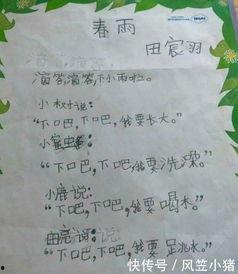 春雨
田宸羽
滴答,滴答,下小雨啦。
小树说:
“下吧,下吧,我要长大。”
“下吧,下吧,我要洗澡。”
小鹿说:
“下吧,下吧,我要喝水。”
“下吧,下吧,我要跳水。”
快传号/风笠小猪